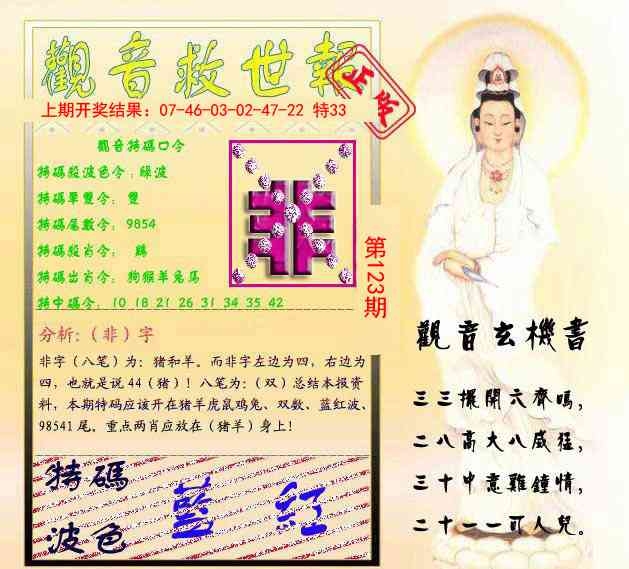 觀音救世報
正版
上期开奖结果：07-46-03-02-47-22 特33
觀音特碼口令
特碼殺波色令：綠波
特碼單雙令： 雙
特碼尾數令： 9854
特碼殺肖令： 鷄
特碼出肖令： 狗猴羊兔馬
特中碼令： 10 18 21 26 31 34 35 42
非
第123期
分析:（非）字
非字（八笔）为：猪和羊。而非字左边为四，右边为
四，也就是说 44（猪）！八笔为：（双）总结本报资
料，本期特码应该开在猪羊虎鼠鸡兔、双数、蓝红波、
98541 尾。重点两肖应放在（猪羊）身上！
特碼
波色
藍 紅
觀音玄機書
三三擺開六齊鳴，
二八高大八威猛，
三十中意雞鐘情，
二十一一可人兒。